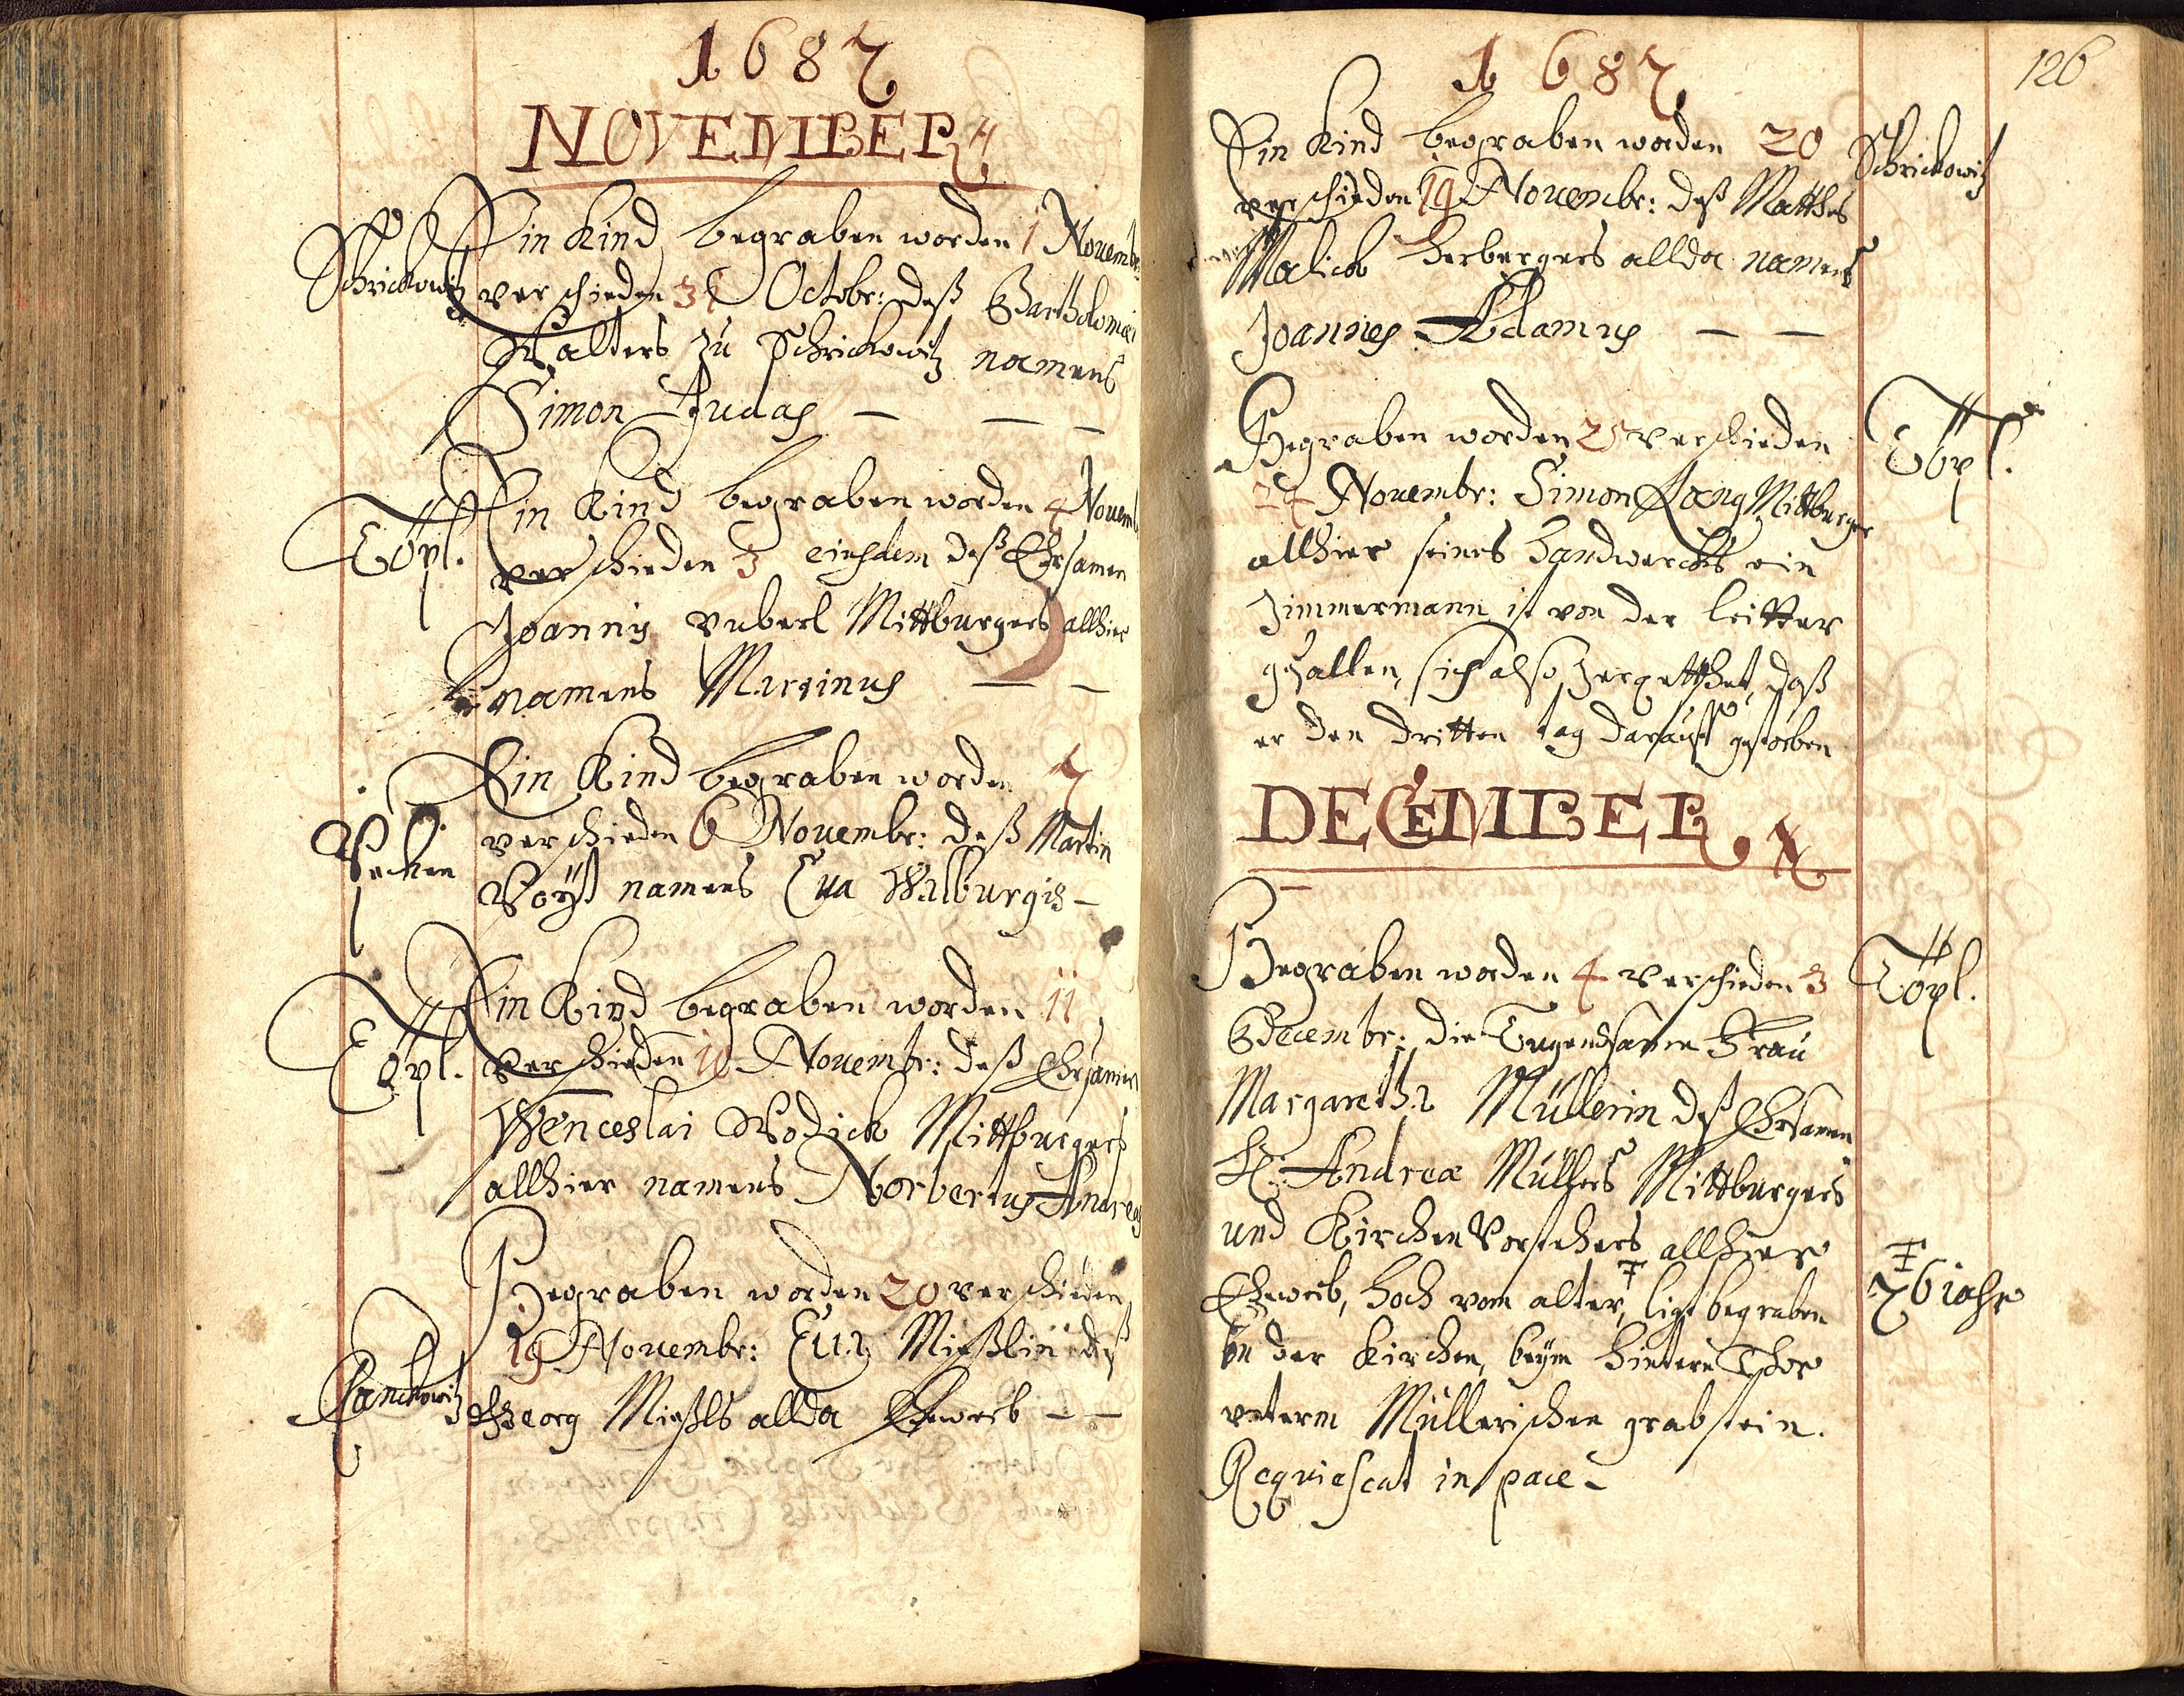 1687
NOVEMBER
Schrickowitz
Ein Kind begraben worden 1 Novemb:
verschieden 31 Octobr: deß Bartholomæi
Walters zu Schrickowitz namens
Simon Judas — — —
Töpl.
Ein Kind begraben worden 4 Novemb
verschieden 3 eiusdem deß Ehrsamen
Joannis Mittburgers allhier
namens Martinus — —
Ein Kind begraben worden 7
verschieden 6 Novembr: deß Martin
namens Eva Walburgis —
Töpl.
Ein Kind begraben worden 11
verschieden 10 Novembr: deß Ehrsamen
Wenceslai Mittburgers
allhier namens Norbertus Andreas
Begraben worden 20 verschieden
19 Novembr: Eva Mießlin deß
Panckowitz
Georg Mießls allda Eheweib — —
126
1687
Ein Kind begraben worden 20
Schrickowitz
verschieden 19 Novembr: deß Matthes
Malick Herbergers allda namens
Joannes Adamus — —
Begraben worden 25 verschieden
Töpl.
24 Novembr: Simon Lang Mittburger
allhier seines Handwercks ein
Zimmermann ist von der leitter
gefallen, sich also daß
er den dritten tag darauff gestorben
DECEMBER
Begraben worden 4 verschieden 3
Töpl.
Decembr: die Tugendsame Frau
Margaretha Müllerin deß Ehrsamen
H: Andrea Müllers Mittburgers
und Kirchen Vorstehers allhier
Eheweib, hoch vom alter, ligt begraben
76 iahr
in der Kirchen, beym hintern Thor
unterm Müllerischen grabstein.
Requiescat in pace —